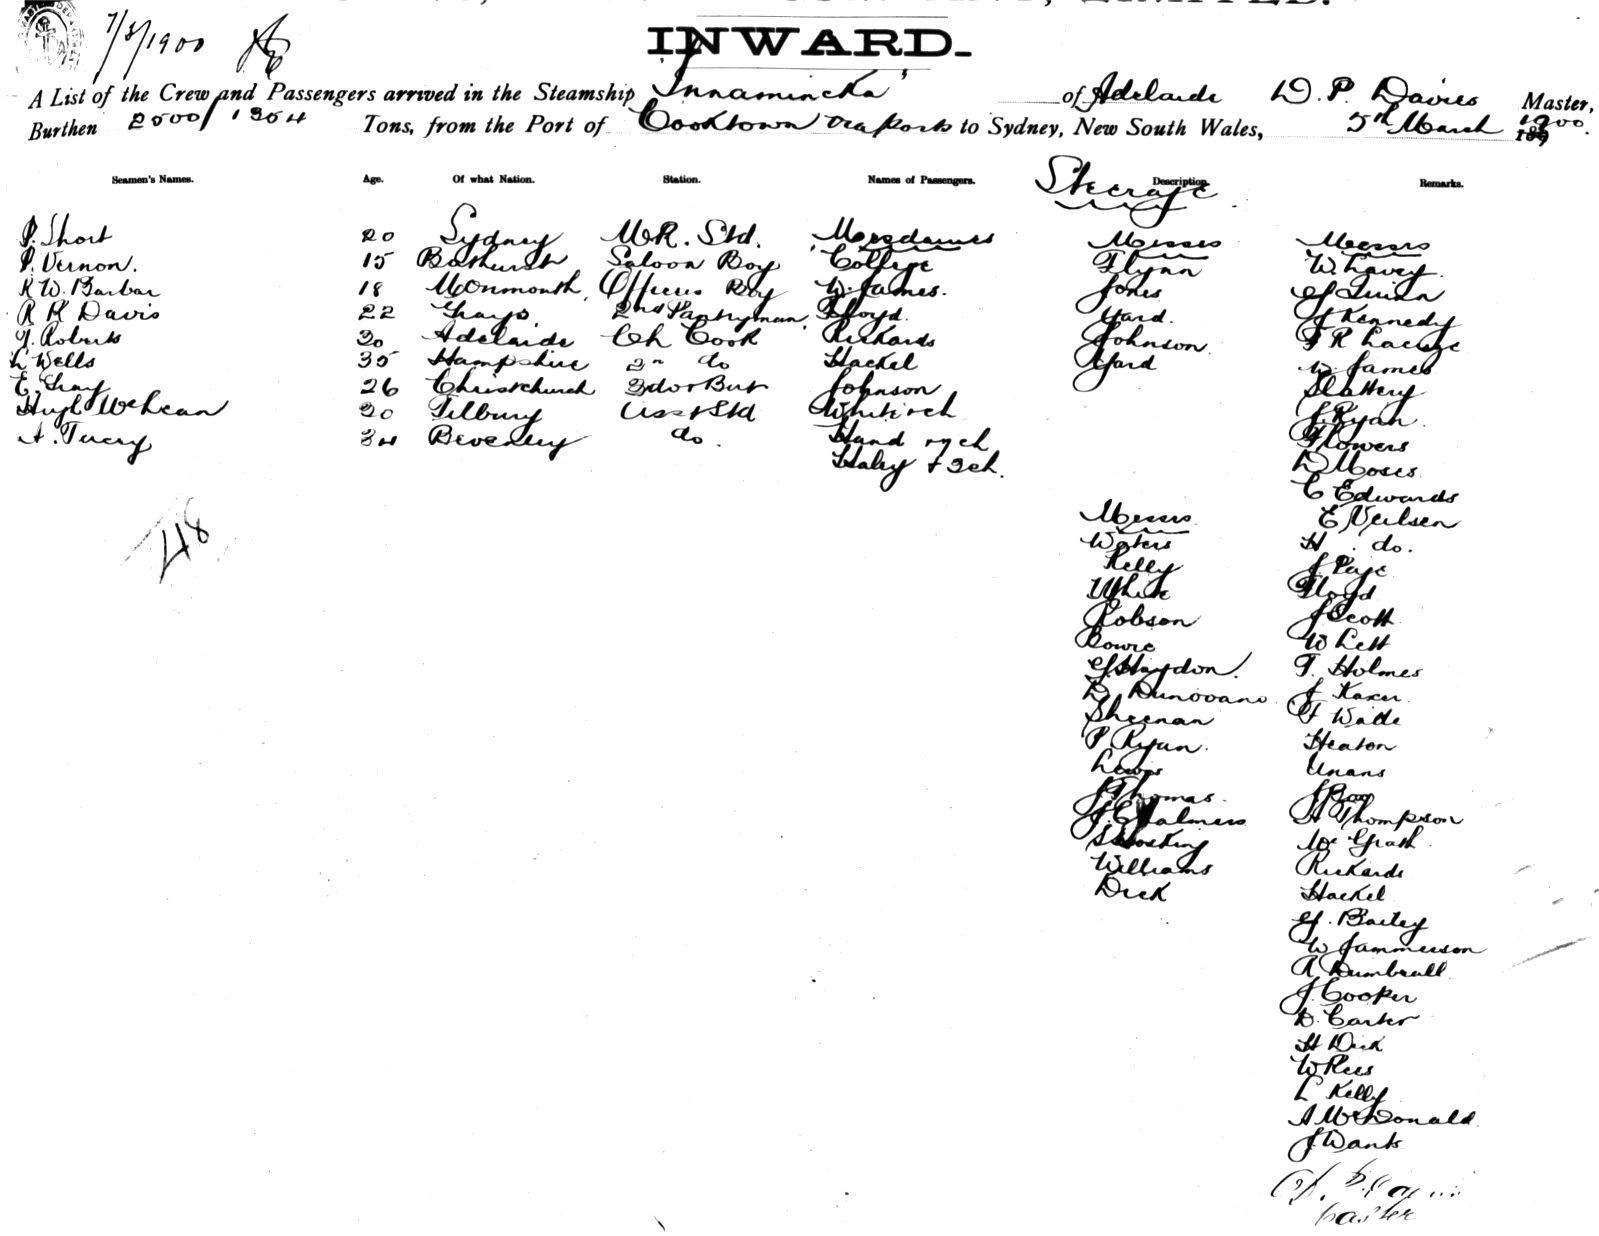 LIMITED.
7/3/1900
INWARD.
A List of the Crew and Passengers arrived in the Steamship Innamincka of Adelaide D. P. Davies Master,
Burthen 2500/1304 Tons, from the Port of Cooktown via ports to Sydney, New South Wales, 5th March 1900.
Seamen's Names. Age. Of what Nation. Station. Names of Passengers. Description. Remarks.
Steerage
P. Short 20 Sydney M.R. Std. Mesdames Misses Messrs
P. Vernon. 15 Bathurst Saloon Boy College Flynn W. Lavey
K W. Barbar 18 Monmouth Officers Boy W. James. Jones G Quinn
R H Davis 22 Grays 2nd Pantryman Floyd. Yard. J Kennedy
G. Roberts 30 Adelaide Ch Cook Rickards Johnson F R
L Wells 35 Hampshire 2n do Hackel Yard W. James
E. Gray 26 Christchurch 3d or But Johnson Slattery
Hugh McLean 20 Tilbury Asst Std J. Ryan
A. 34 Beverley do. Hand Flowers
Haley + 3 ch. D Moses
C Edwards
Messrs E Neilsen
Waters H. do.
Kelly J Page
White Floyd
Robson J Scott
Bowie W Lett
G. Haydon. T. Holmes
D. Dunovano J
Sheenan F Wade
P. Ryan. Heaton
Lewis Unans
J Thomas. J
J. Chalmers H Thompson
S Hosking Mc Grath
Williams Rickards
Dick Hackel
G. Bailey
W Jammerson
R Dumbrall
J. Cooper
D. Carter
H Dick
W Rees
L Kelly
A McDonald
J. Wants
218